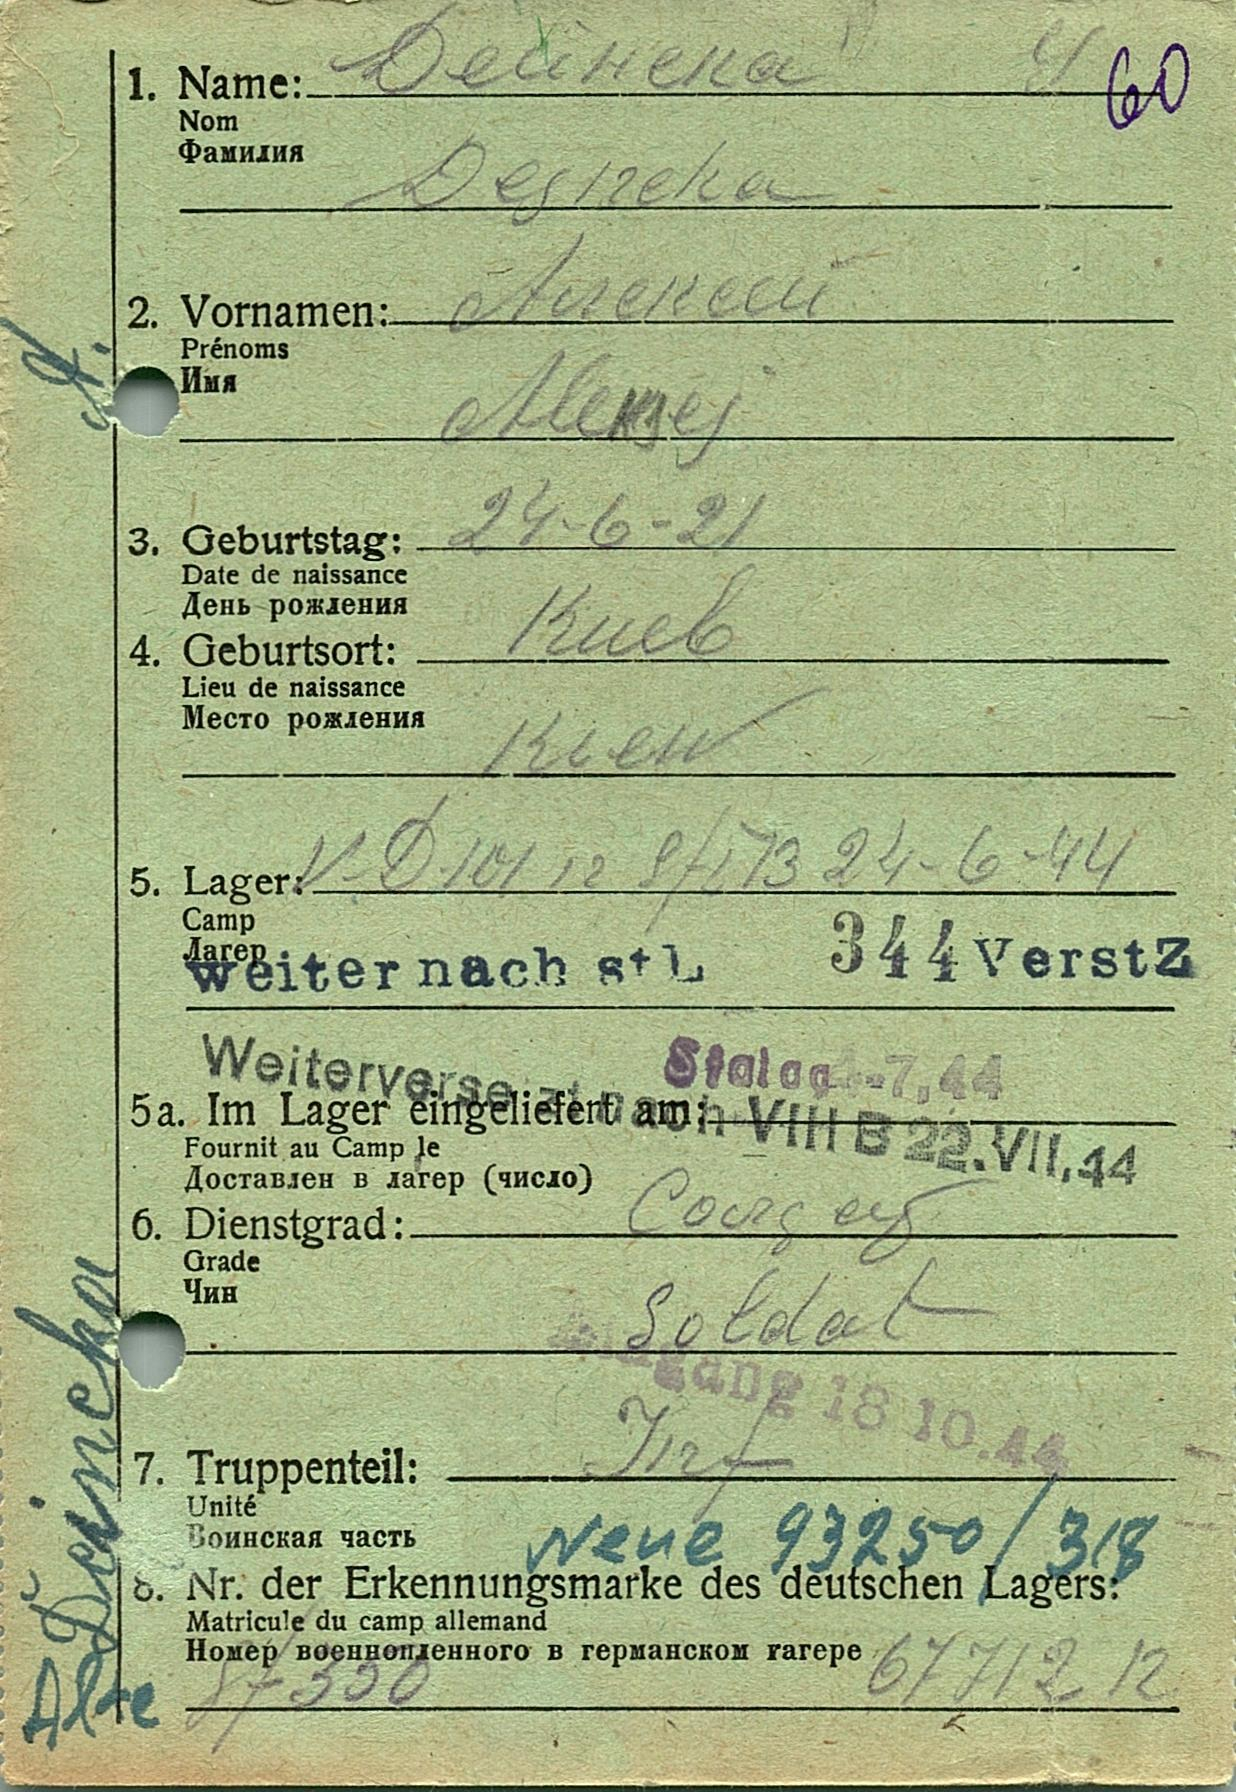 1. Name: Дейнека У 60
Nom
Фамилия
Dejneka
2. Vornamen: Алексей
Prénoms
Имя
Aleksej
3. Geburtstag: 24-6-21
Date de naissance
День рождения
4. Geburtsort: Киев
Lieu de naissance
Место рождения
Kiew
5. Lager: 24-6-44
Camp
Лагер
weiter nach stL 344 verstZ
Weiterversetzt nach VIII B 22.VII.44
Stalag -7.44
5a. Im Lager eingeliefert am:
Fournit au Camp le
Доставлен в лагер (число)
6. Dienstgrad:
Grade
Чин
Soldat
Eingang 18 10.44
7. Truppenteil: Inf
Unité
Воинская часть
Neue 93250/318
8. Nr. der Erkennungsmarke des deutschen Lagers:
Matricule du camp allemand
Номер военнопленного в германском гагере
Alte 350 67712
A.
Deincka